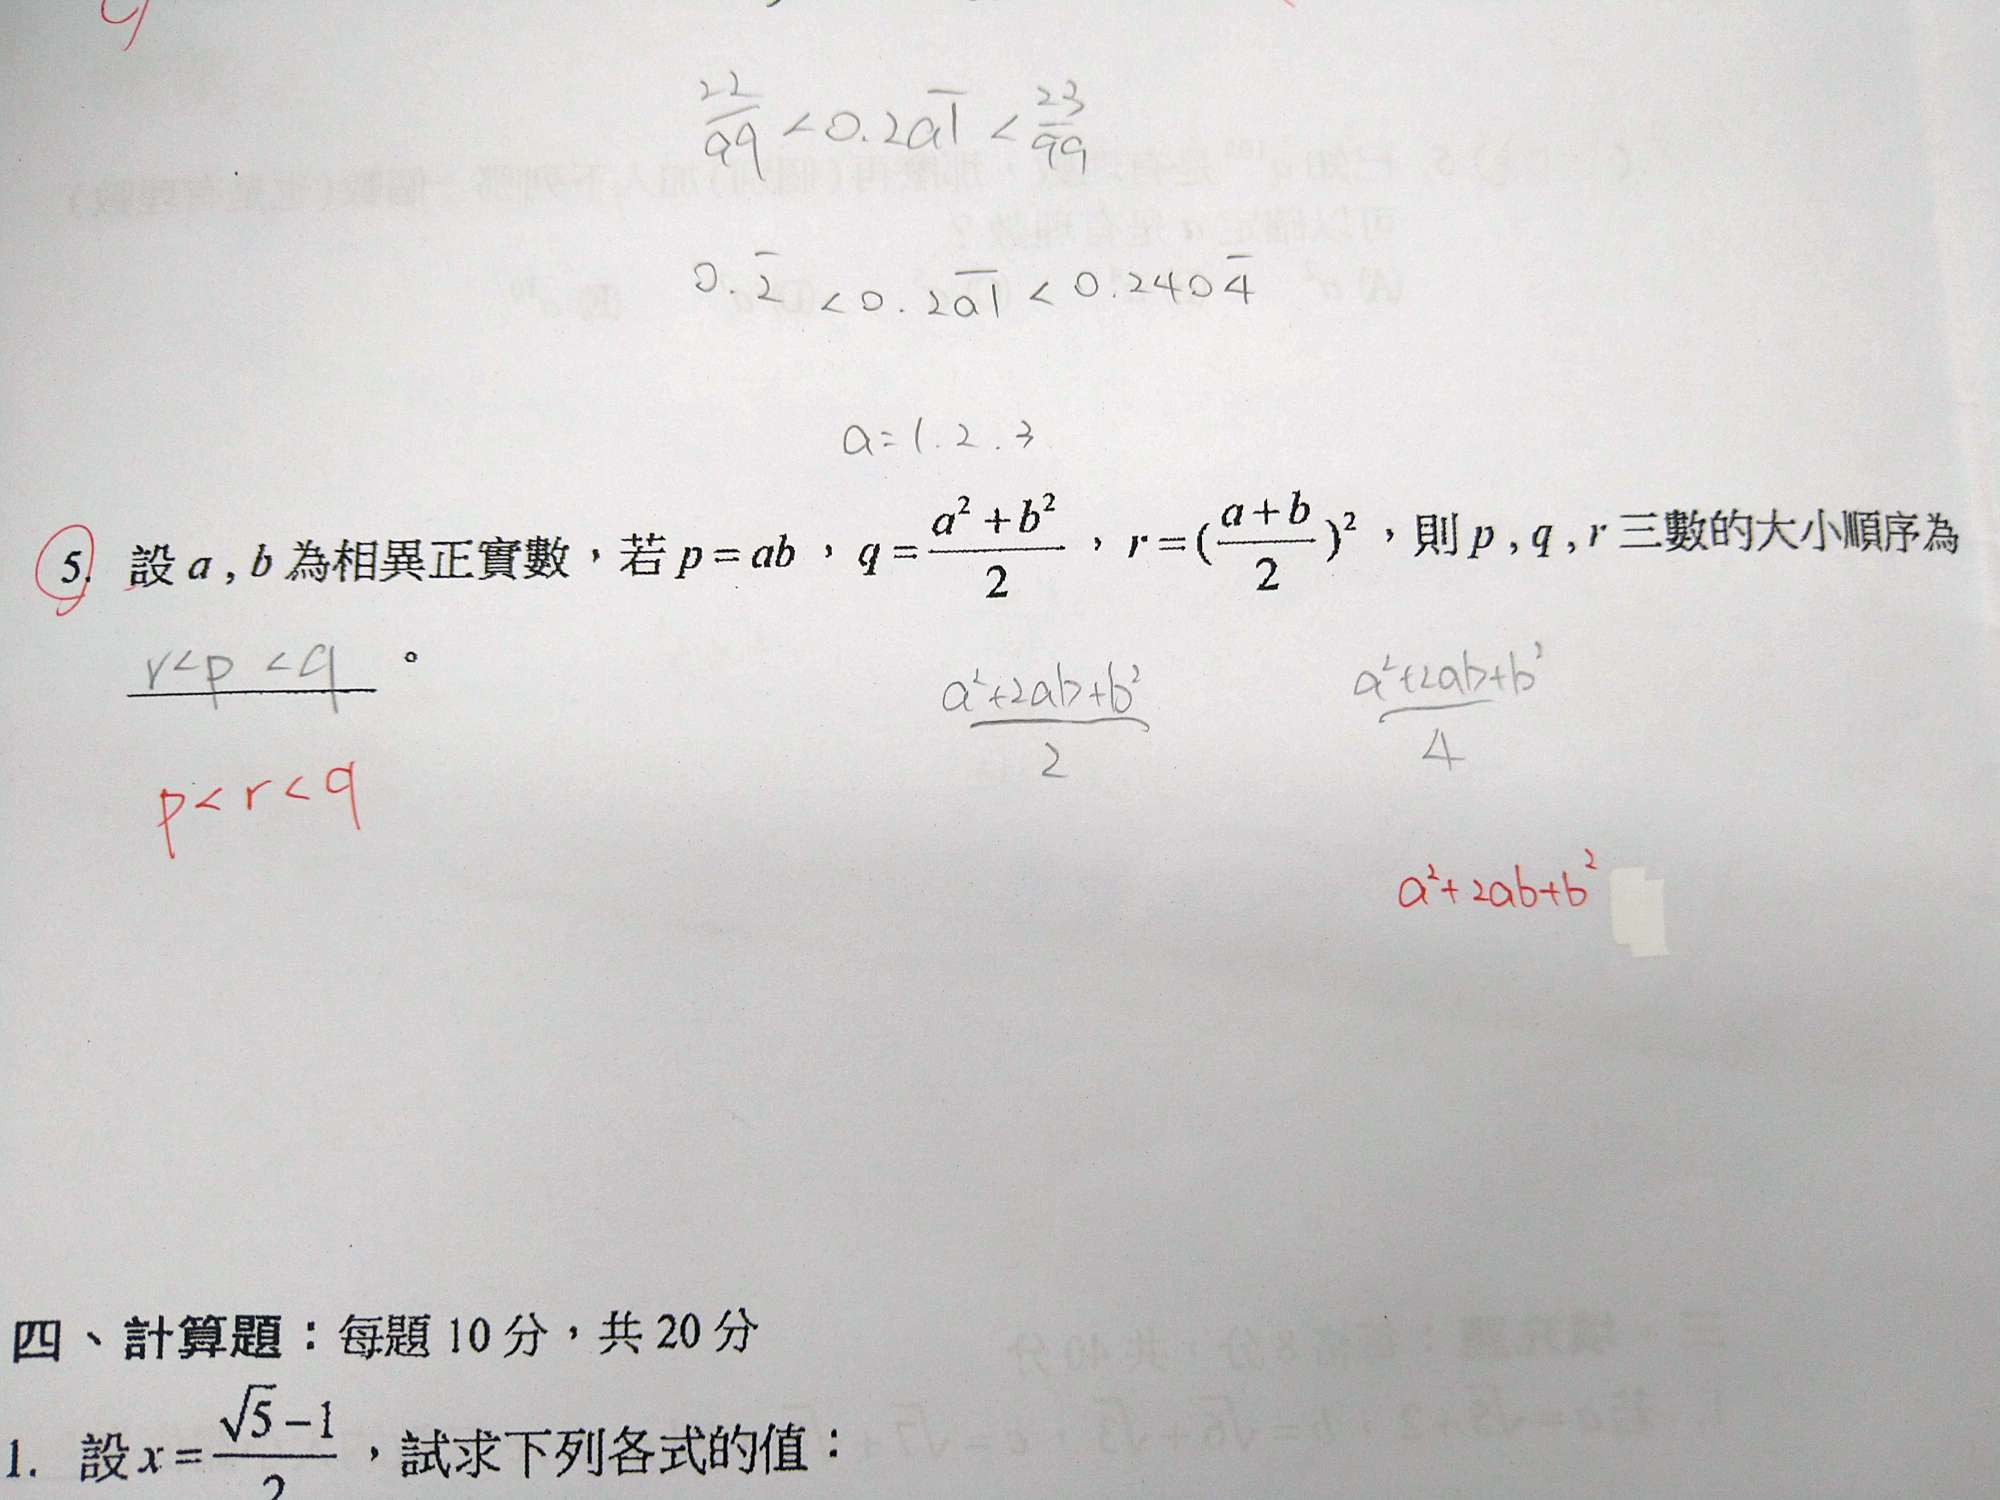 22/99 < 0.2a̅1̅ < 23/99
0.2̅ < 0.2a̅1̅ < 0.2404̅
a=1.2.3
5. 設 a , b 為相異正實數，若 p = ab ， q = (a² + b²)/2 ， r = ((a + b)/2)² ，則 p , q , r 三數的大小順序為
r<p<q 。
(a²+2ab+b²)/2 (a²+2ab+b²)/4
p<r<q
a²+2ab+b²
四、計算題：每題 10 分，共 20 分
1. 設 x = (√5 − 1)/2 ，試求下列各式的值：